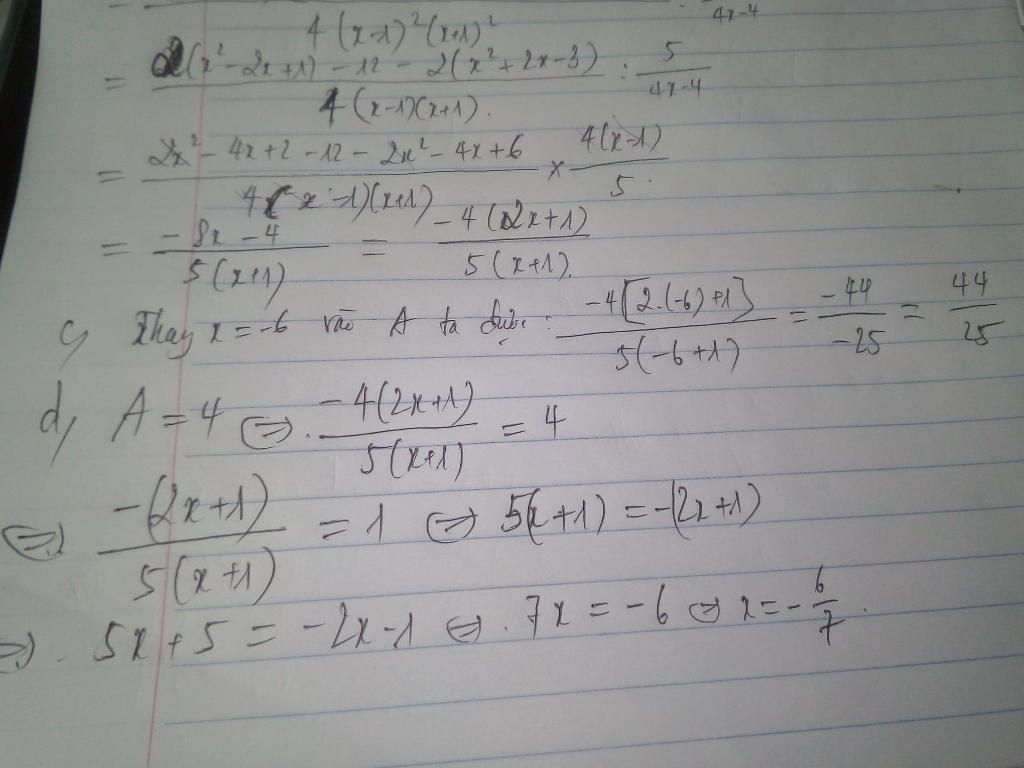 4x-4
4(x-1)²(x+1)²
= \frac{2(x²-2x+1)-12-2(x²+2x-3)}{4(x-1)(x+1).} : \frac{5}{4x-4}
= \frac{2x²-4x+2-12-2x²-4x+6}{4(x-1)(x+1)} × \frac{4(x-1)}{5.}
= \frac{-8x-4}{5(x+1)} = \frac{-4(2x+1)}{5(x+1).}
c, Thay x=-6 vào A ta được: \frac{-4[2.(-6)+1]}{5(-6+1)} = \frac{-44}{-25} = \frac{44}{25}
d, A=4 ⇔. \frac{-4(2x+1)}{5(x+1)} = 4
⇔) \frac{-(2x+1)}{5(x+1)} = 1 ⇔ 5(x+1)=-(2x+1)
⇔). 5x+5=-2x-1 ⇔. 7x=-6 ⇔ x=-\frac{6}{7}.